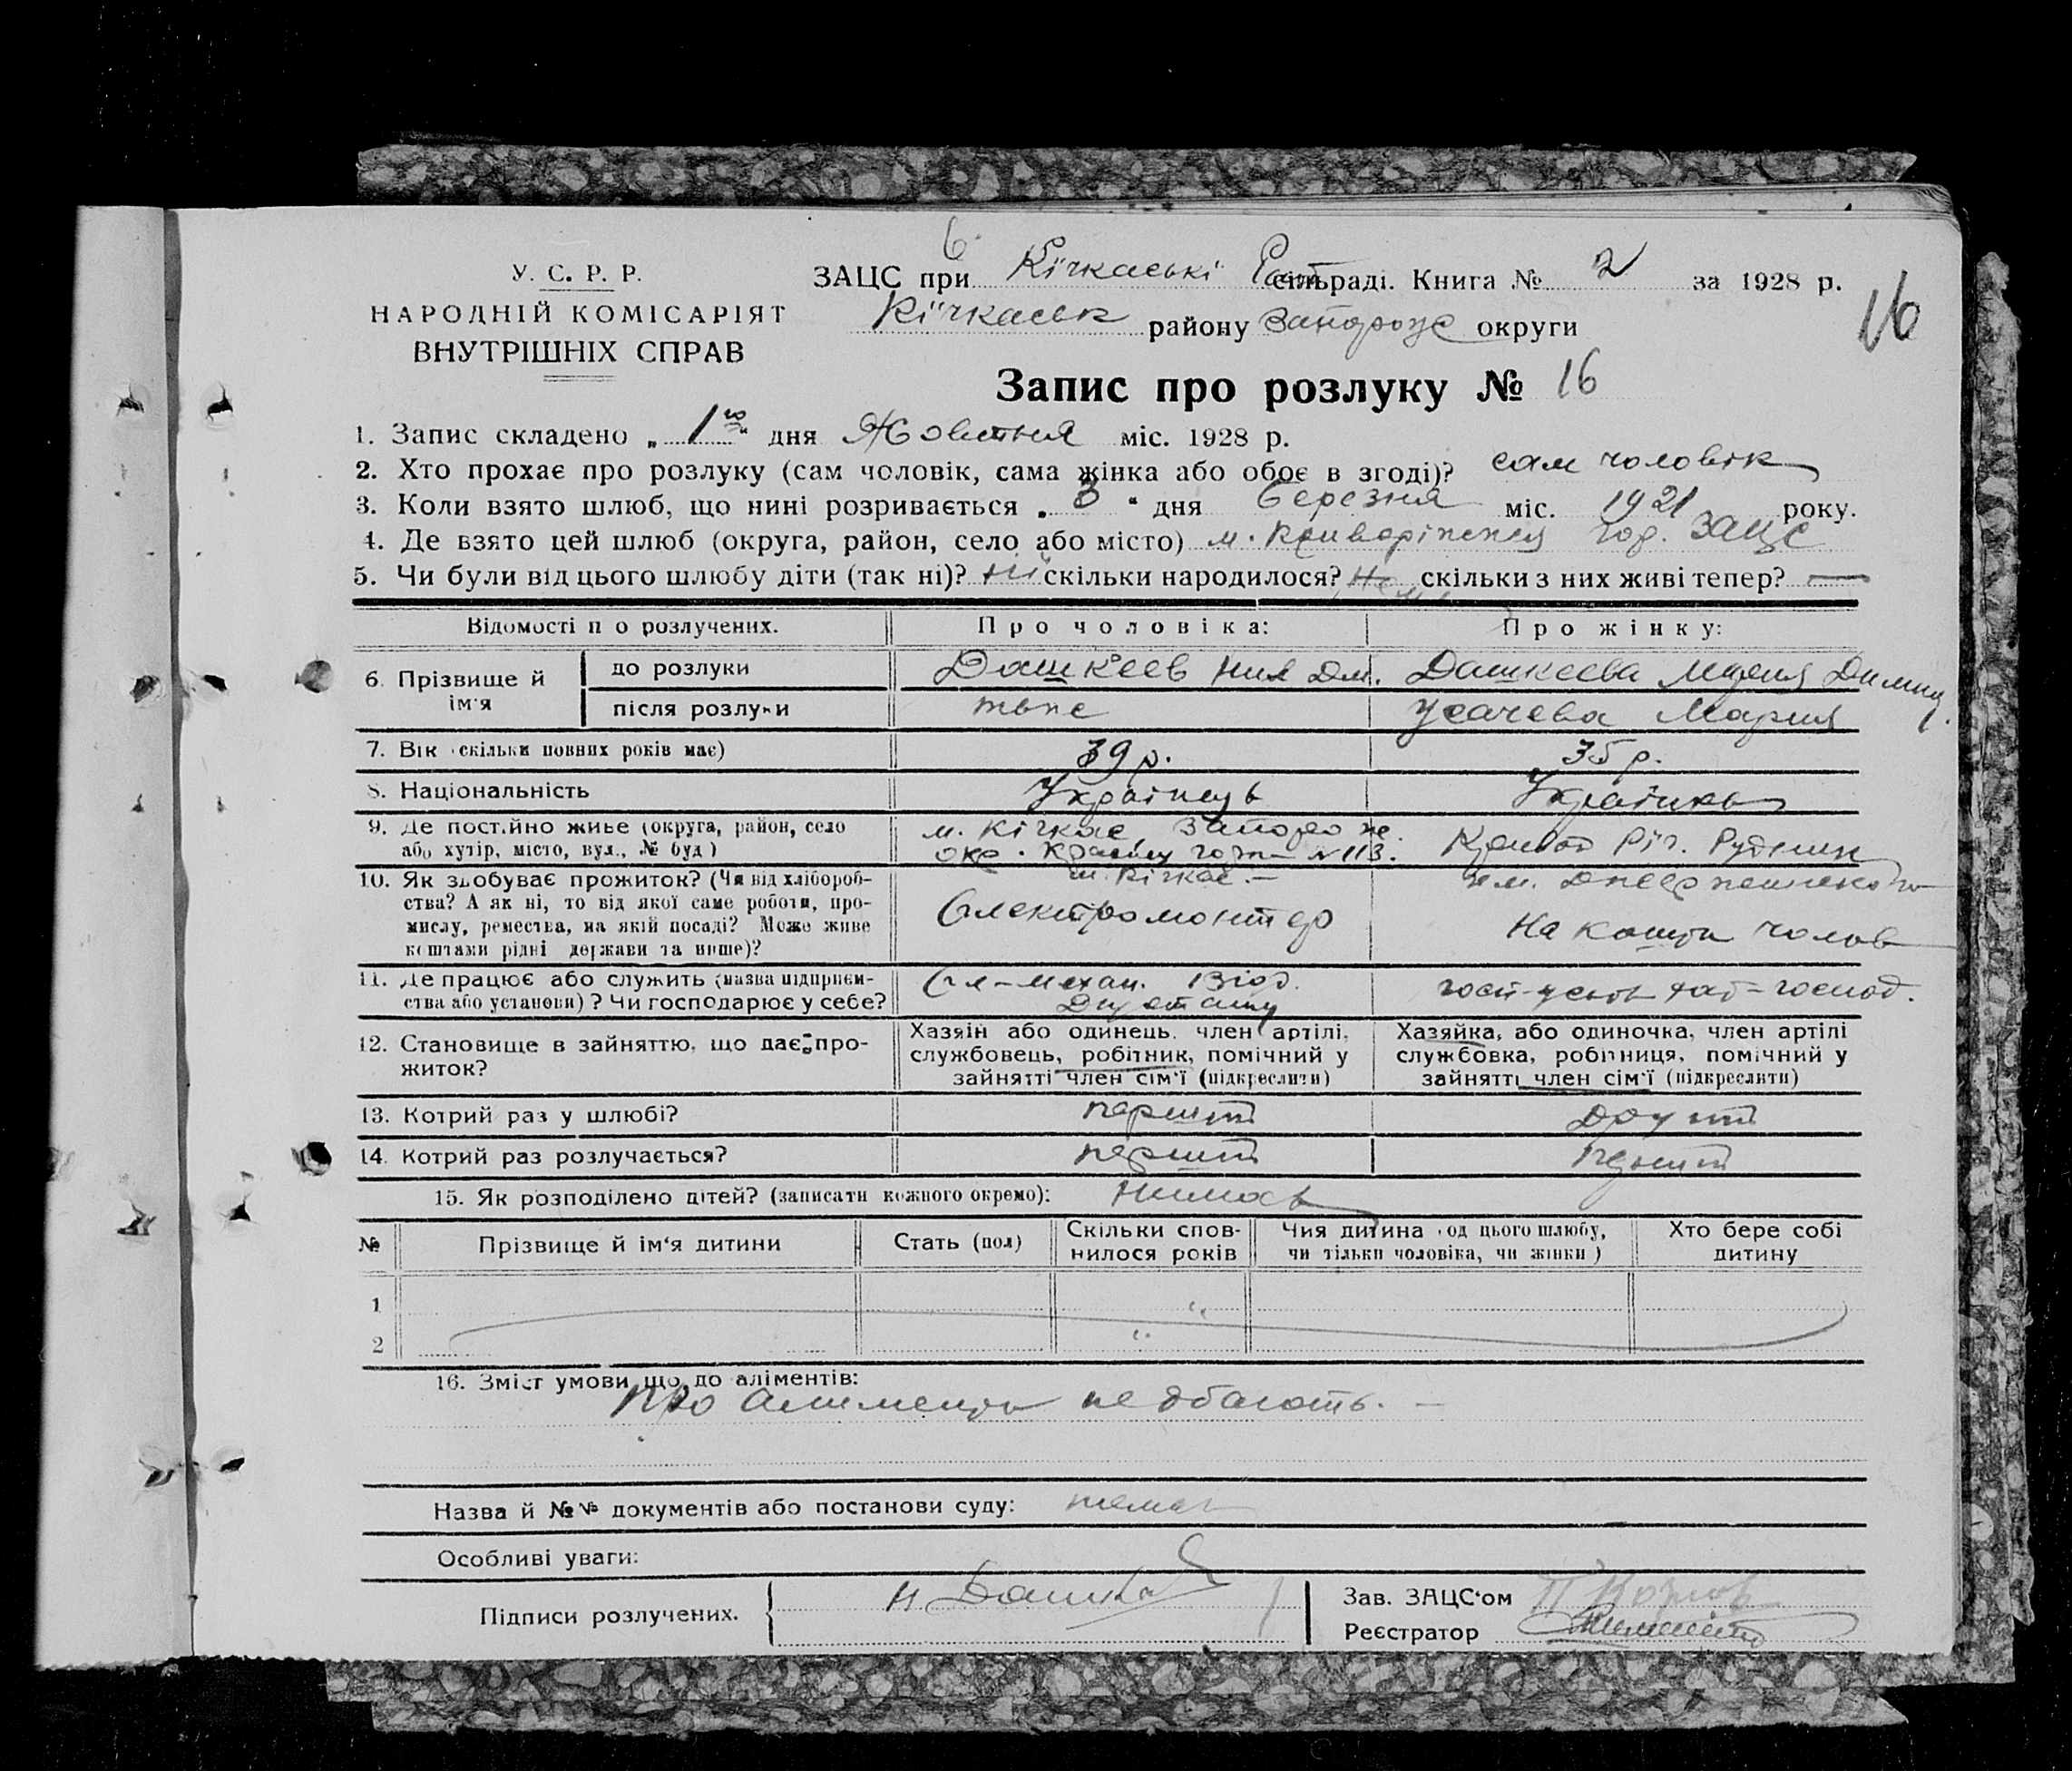 6
У. С. Р. Р.
НАРОДНІЙ КОМІСАРІЯТ
ВНУТРІШНІХ СПРАВ
ЗАЦС при Кічкаські сільраді. Книга № 2 за 1928 р.
Кічкаськ району Запорожс округи
16
Запис про розлуку № 16
1. Запис складено „ 1го “ дня Жовтня міс. 1928 р.
2. Хто прохає про розлуку (сам чоловік, сама жінка або обоє в згоді)? сам чоловік
3. Коли взято шлюб, що нині розривається „ 3 “ дня березня міс. 1921 року.
4. Де взято цей шлюб (округа, район, село або місто) м. гор. ЗАЦС
5. Чи були від цього шлюбу діти (так ні)? ні скільки народилося? скільки з них живі тепер? —
Відомості по розлучених. Про чоловіка: Про жінку:
6. Прізвище й ім'я до розлуки Дашкеев Нил Дм. Дашкеева Мария
після розлуки тьпе Усачева Мария
7. Вік (скільки повних років має) 39 р. 35 р.
8. Національність Українець Українка
9. Де постійно живе (округа, район, село або хутір, місто, вул., № буд) м. Кічкас, Запорож. окр. № 113. м. Кічкас. — Кривой Ріг. Рудник
10. Як здобуває прожиток? (Чи від хлібороб-
ства? А як ні, то від якої саме роботи, про-
мислу, ремества, на якій посаді? Може живе
коштами рідні держави та инше)?
Електромонтер На кошти чолов
11. Де працює або служить (назва підприєм-
ства або установи)? Чи господарює у себе?
Ел-механ. Від.
12. Становище в зайняттю, що дає про-
житок?
Хазяїн або одинець, член артілі,
службовець, робітник, помічний у
зайнятті член сім'ї (підкреслити)
Хазяйка, або одиночка, член артілі
службовка, робітниця, помічний у
зайнятті член сім'ї (підкреслити)
13. Котрий раз у шлюбі? перший другий
14. Котрий раз розлучається? перший перший
15. Як розподілено дітей? (записати кожного окремо):
№ Прізвище й ім'я дитини Стать (пол) Скільки спов-
нилося років Чия дитина (од цього шлюбу,
чи тільки чоловіка, чи жінки) Хто бере собі
дитину
1
2
16. Зміст умови що до аліментів:
Про алименти не дбають. —
Назва й №№ документів або постанови суду: немає
Особливі уваги:
Підписи розлучених. Н Дашкеев
Зав. ЗАЦС'ом
Реєстратор